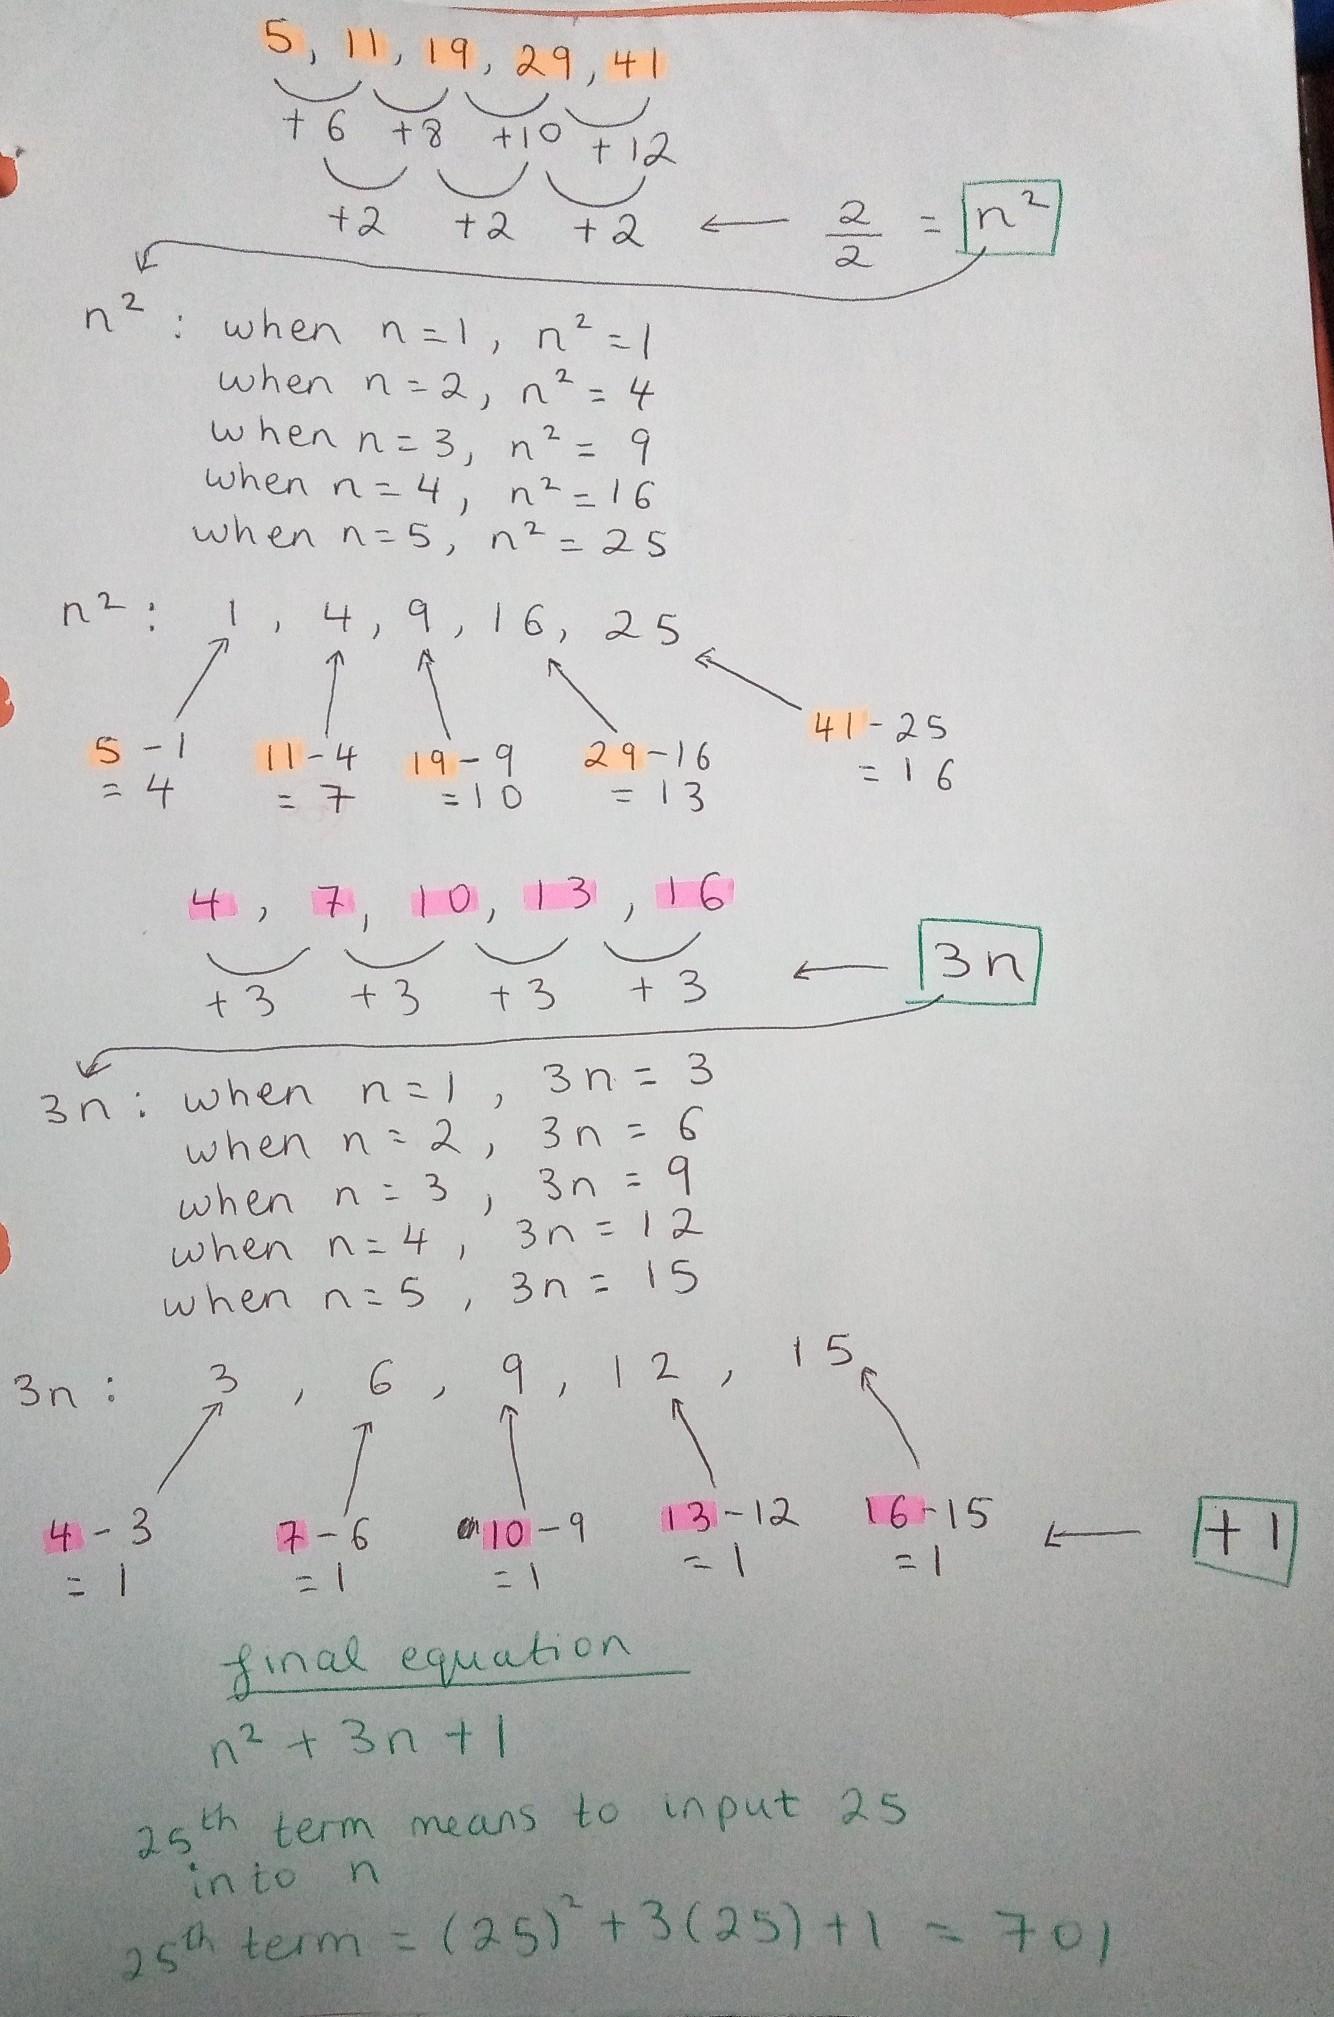 5, 11, 19, 29, 41
+6 +8 +10 +12
+2 +2 +2 ← 2/2 = n²
n² : when n=1, n²=1
when n=2, n²=4
when n=3, n²=9
when n=4, n²=16
when n=5, n²=25
n² : 1, 4, 9, 16, 25
5-1 11-4 19-9 29-16 41-25
=4 =7 =10 =13 =16
4, 7, 10, 13, 16
+3 +3 +3 +3 ← 3n
3n : when n=1, 3n=3
when n=2, 3n=6
when n=3, 3n=9
when n=4, 3n=12
when n=5, 3n=15
3n : 3, 6, 9, 12, 15
4-3 7-6 10-9 13-12 16-15 ← +1
=1 =1 =1 =1 =1
final equation
n² + 3n + 1
25th term means to input 25
into n
25th term = (25)² + 3(25) + 1 = 701